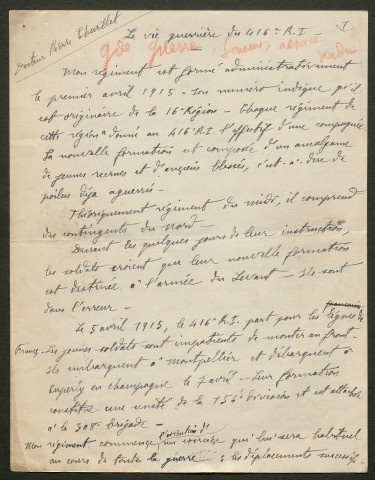 La vie guerrière du 416e R.I. — 1
Docteur Pierre
gde guerre, Somme, alsace
Mon régiment est formé administrativement
le premier avril 1915 — Son numéro indique qu'il
est originaire de la 16e Région — Chaque régiment de
cette région a donné au 416e R.I. l'effectif d'une compagnie
La nouvelle formation est composée d'un amalgame
de jeunes recrues et d'anciens blessés, c'est-à-dire de
poilus déjà aguerris —
Théoriquement régiment du midi, il comprend
des contingents du Nord —
Durant les quelques jours de leur instruction,
les soldats croient que leur nouvelle formation
est destinée à l'armée du Levant — Ils sont
dans l'erreur —
Le 5 avril 1915, le 416e R.I. part pour les lignes de
France — Les jeunes soldats sont impatients de monter au front —
Ils embarquent à Montpellier et débarquent à
Cuperly en Champagne le 7 avril — Leur formation
constitue une unité de la 154e division et est attachée
à la 308e brigade —
Mon régiment commence un exercice qui lui sera habituel
au cours de toute la guerre : les déplacements successifs